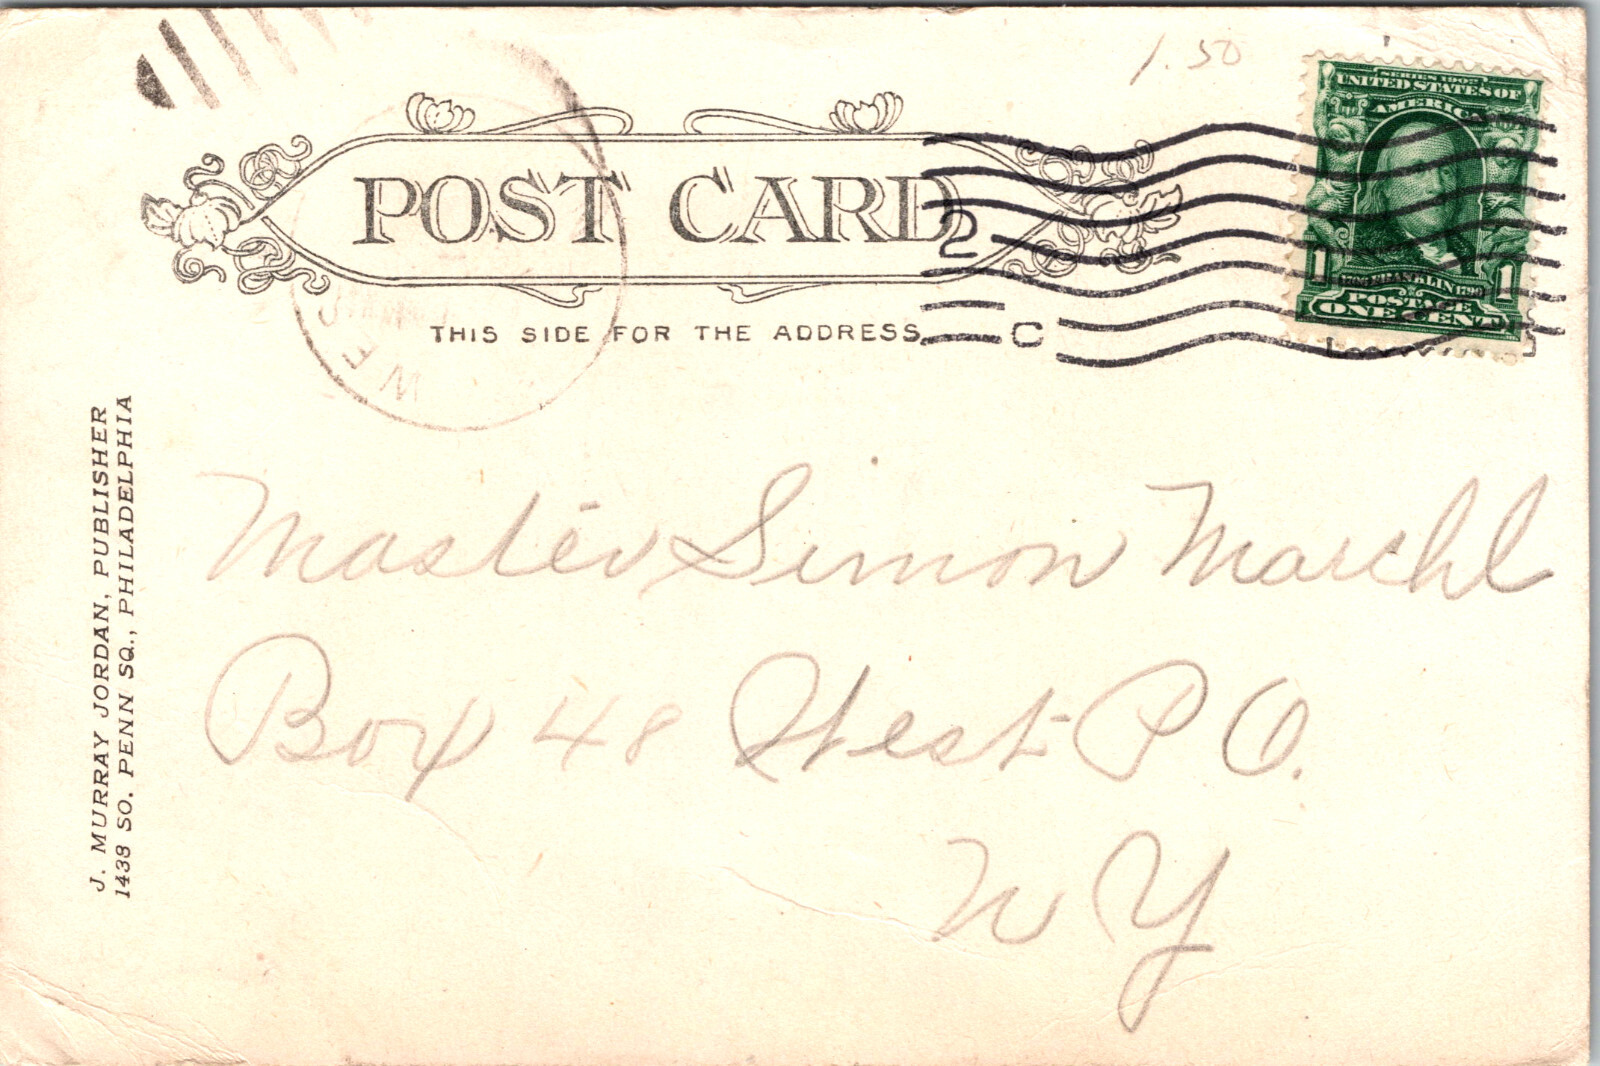 1.50
SERIES 1902
UNITED STATES OF
AMERICA
1 1706 FRANKLIN 1790 1
POSTAGE
ONE CENT
POST CARD
2
C
THIS SIDE FOR THE ADDRESS
WE
J. MURRAY JORDAN, PUBLISHER
1438 SO. PENN SQ., PHILADELPHIA
Master Simon Marchl
Box 48 West P O.
N Y